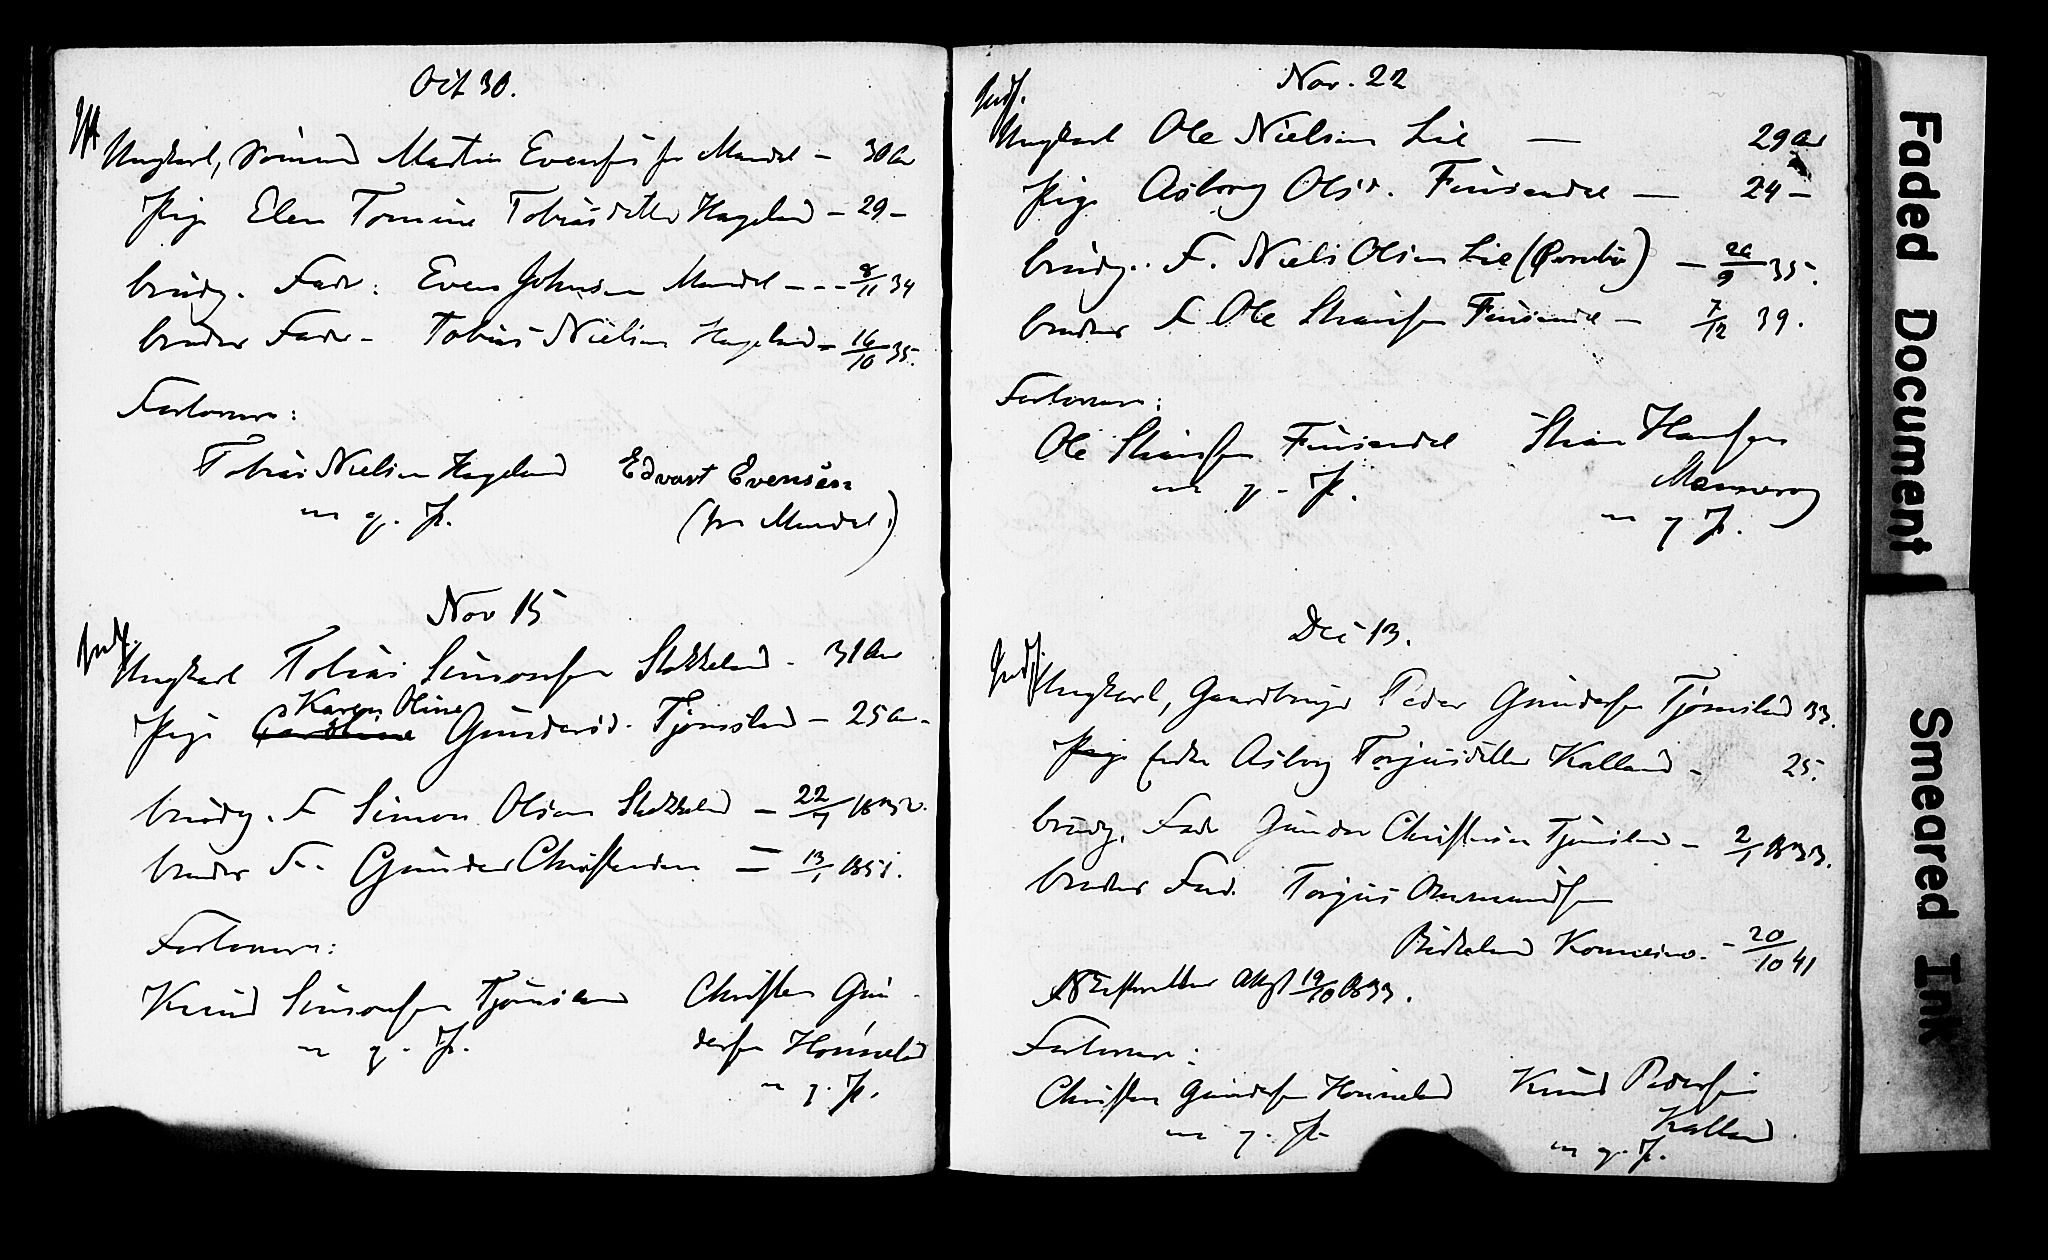 Oct 30.
Ungkarl, Sømand Martin Evensen fra Mandal – 30 Aar
Pige Elen Tomine Tobiasdatter Hageland – 29 –
brudg. Fader: Even Johnsen Mandal – – – 8/11 34
brudens Fader – Tobias Nielsen Hageland – 16/10 35.
Forlovere:
Tobias Nielsen Hageland Edvart Evensen
m. p. P. (fra Mandal)
Nov 15
Indf.
Ungkarl Tobias Simonsen Stokkeland – 31 Aar
Karen Oline
Pige Caroline Gundersd. Tjomsland – 25 Aar
brudg. F Simon Olsen Stokkeland – 22/7 1832.
brudens F. Gunder Christensen = 13/1 1851.
Forlovere:
Knud Simonsen Tjomsland Christen Gun-
m. p. P. dersen Honneland
m. p. P.
Nov. 22
Indf.
Ungkarl Ole Nielsen Lie — 29 Aar
Pige Asborg Olsd. Finsandal — 24 –
brudg. F. Niels Olsen Lie 35.
brudens F Ole Stiansen Finsandal – 7/12 39.
Forlovere:
Ole Stiansen Finsandal Stian Hansen
m. p. P. Mannerog
m. p. P.
Dec 13.
Indf.
Ungkarl, Gaardbruger Peder Gundersen Tjomsland 33.
Pige Enke Asborg Torjusdatter Kalland – 25.
brudg. Fader Gunder Christensen Tjomsland – 2/1 1833.
brudens Fad. Torjus Aamundsen
Birkeland Konnesmo. – 20/10 41
Skifteretten Attest 19/10 1833.
Forlovere:
Christen Gundersen Honneland Knud Pedersen
m. p. P. Kalland
m. p. P.
Faded Document
Smeared Ink